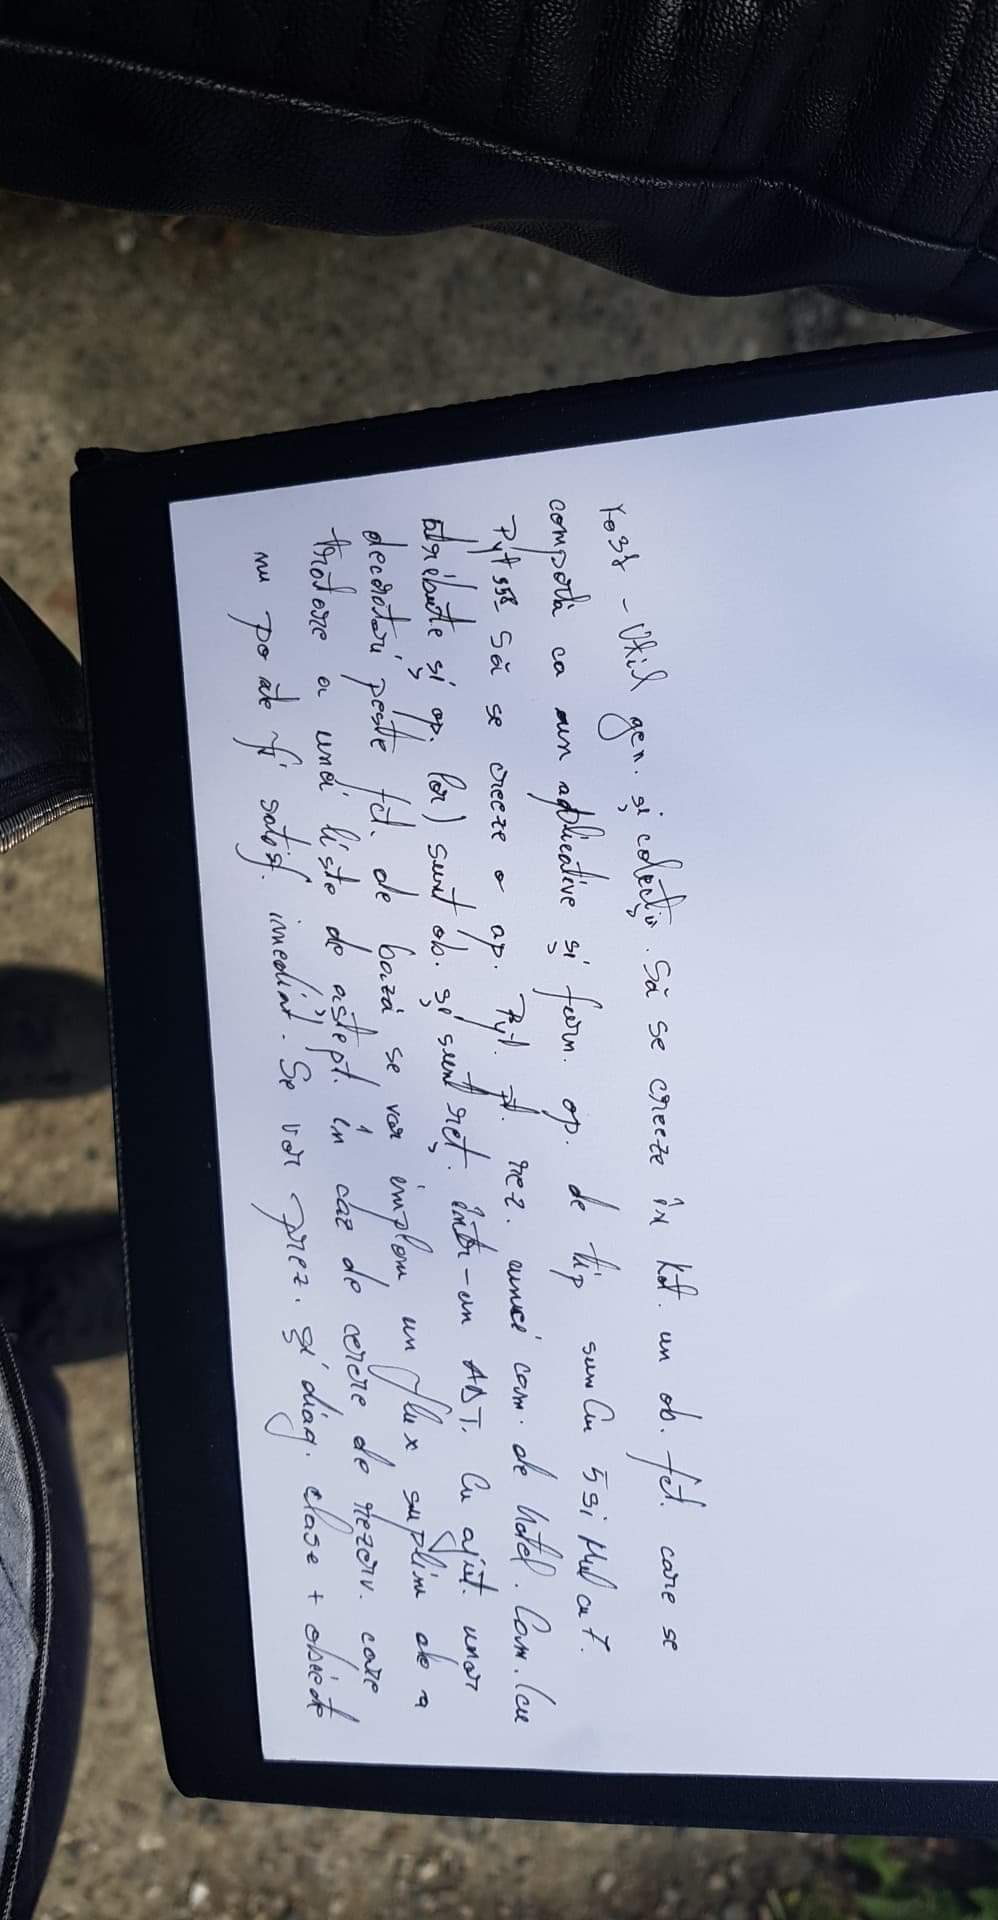 Test - Util gen. și colecții. Să se creeze în kt. un ob. fct. care se
comportă ca un aplicative și furn. op. de tip sum cu 5 și Mul cu 7.
Pyt Să se creeze o ap. Pyt. pt. rez. unei cam. de hotel. Cam. (cu
atribute și op. lor) sunt ob. și sunt reț. într-un ADT. Cu ajut. unor
decoratori peste fct. de bază se va implem un flux suplim de a
tratare a unei liste de aștept. în caz de cerere de rezerv. care
nu poate fi satisf. imediat. Se vor prez. și diag. clase + obiecte